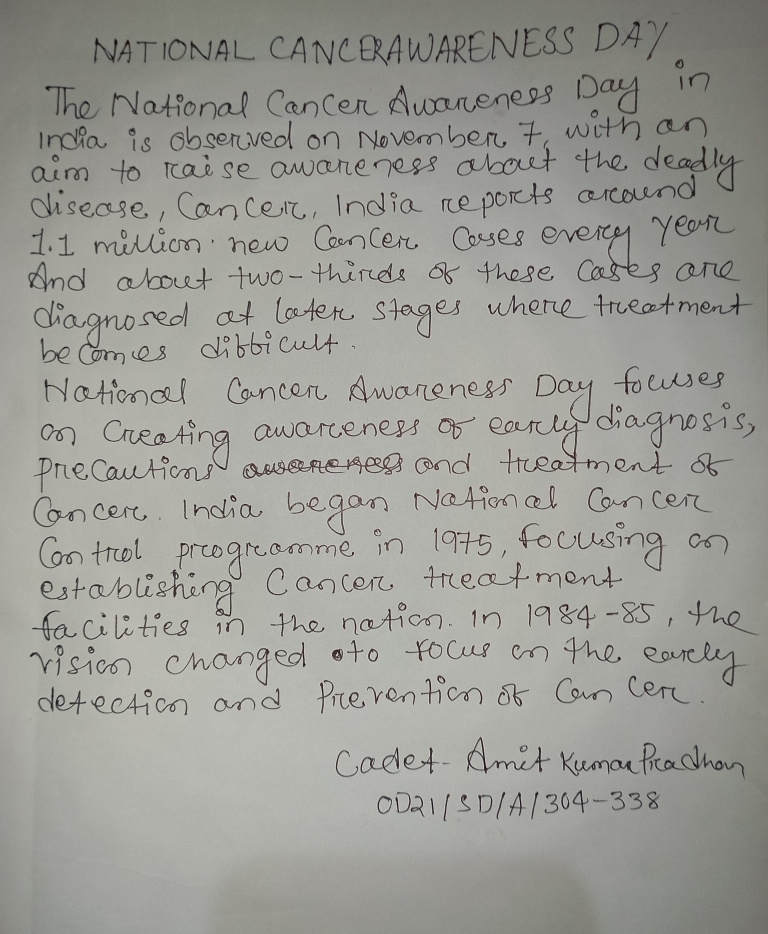 NATIONAL CANCER AWARENESS DAY
The National Cancer Awareness Day in
India is observed on November 7, with an
aim to raise awareness about the deadly
disease, Cancer, India reports around
1.1 million new Cancer Cases every year
And about two-thirds of these Cases are
diagnosed at later stages where treatment
becomes difficult.
National Cancer Awareness Day focuses
on Creating awareness of early diagnosis,
Precautions awareness and treatment of
Cancer. India began National Cancer
Control programme in 1975, focusing on
establishing Cancer treatment
facilities in the nation. In 1984-85, the
vision changed to focus on the early
detection and Prevention of Cancer.
Cadet- Amit Kumar Pradhan
OD21/SD/A/304-338